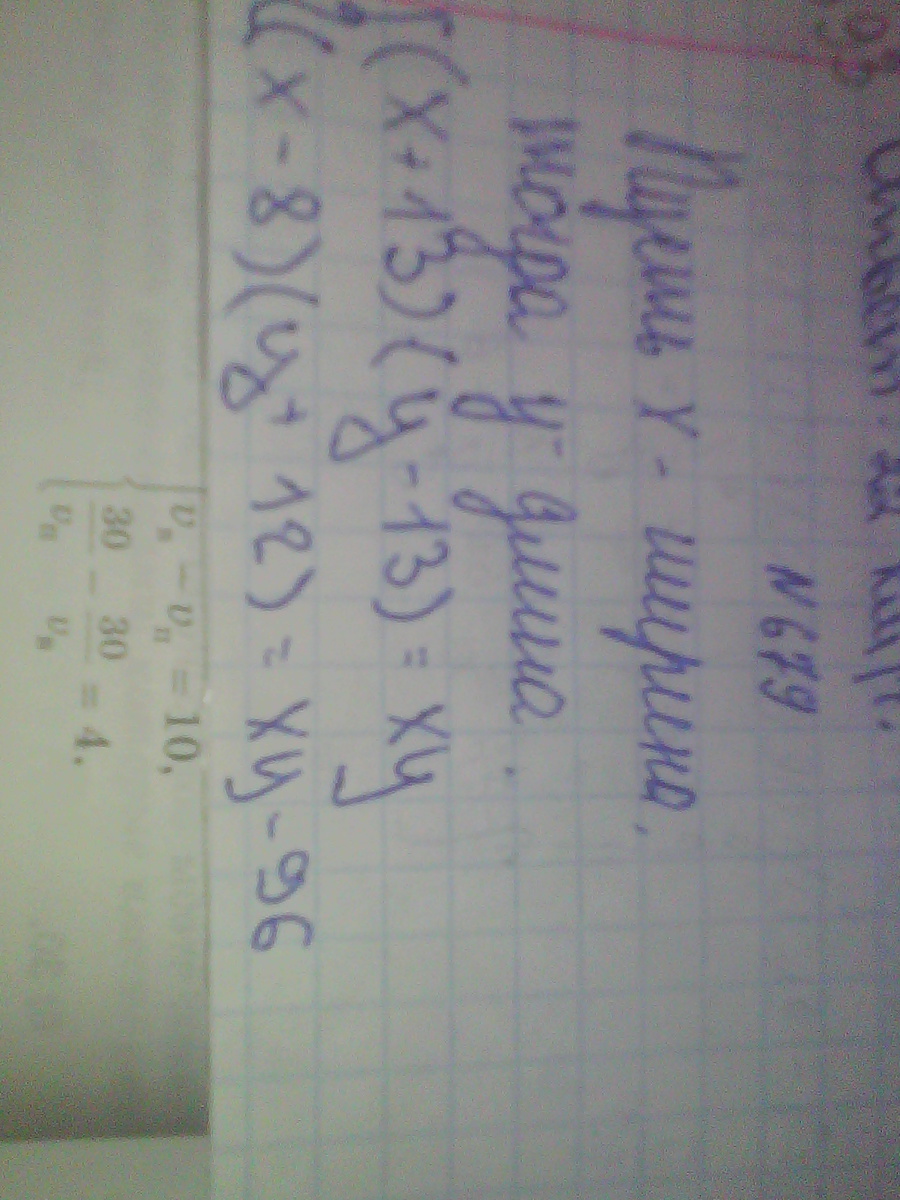 Ответ:
N 679
Пусть X - ширина.
тогда y - длина.
(x + 13)(y - 13) = xy
(x - 8)(y + 12) = xy - 96
vв - vп = 10,
30/vп - 30/vв = 4.